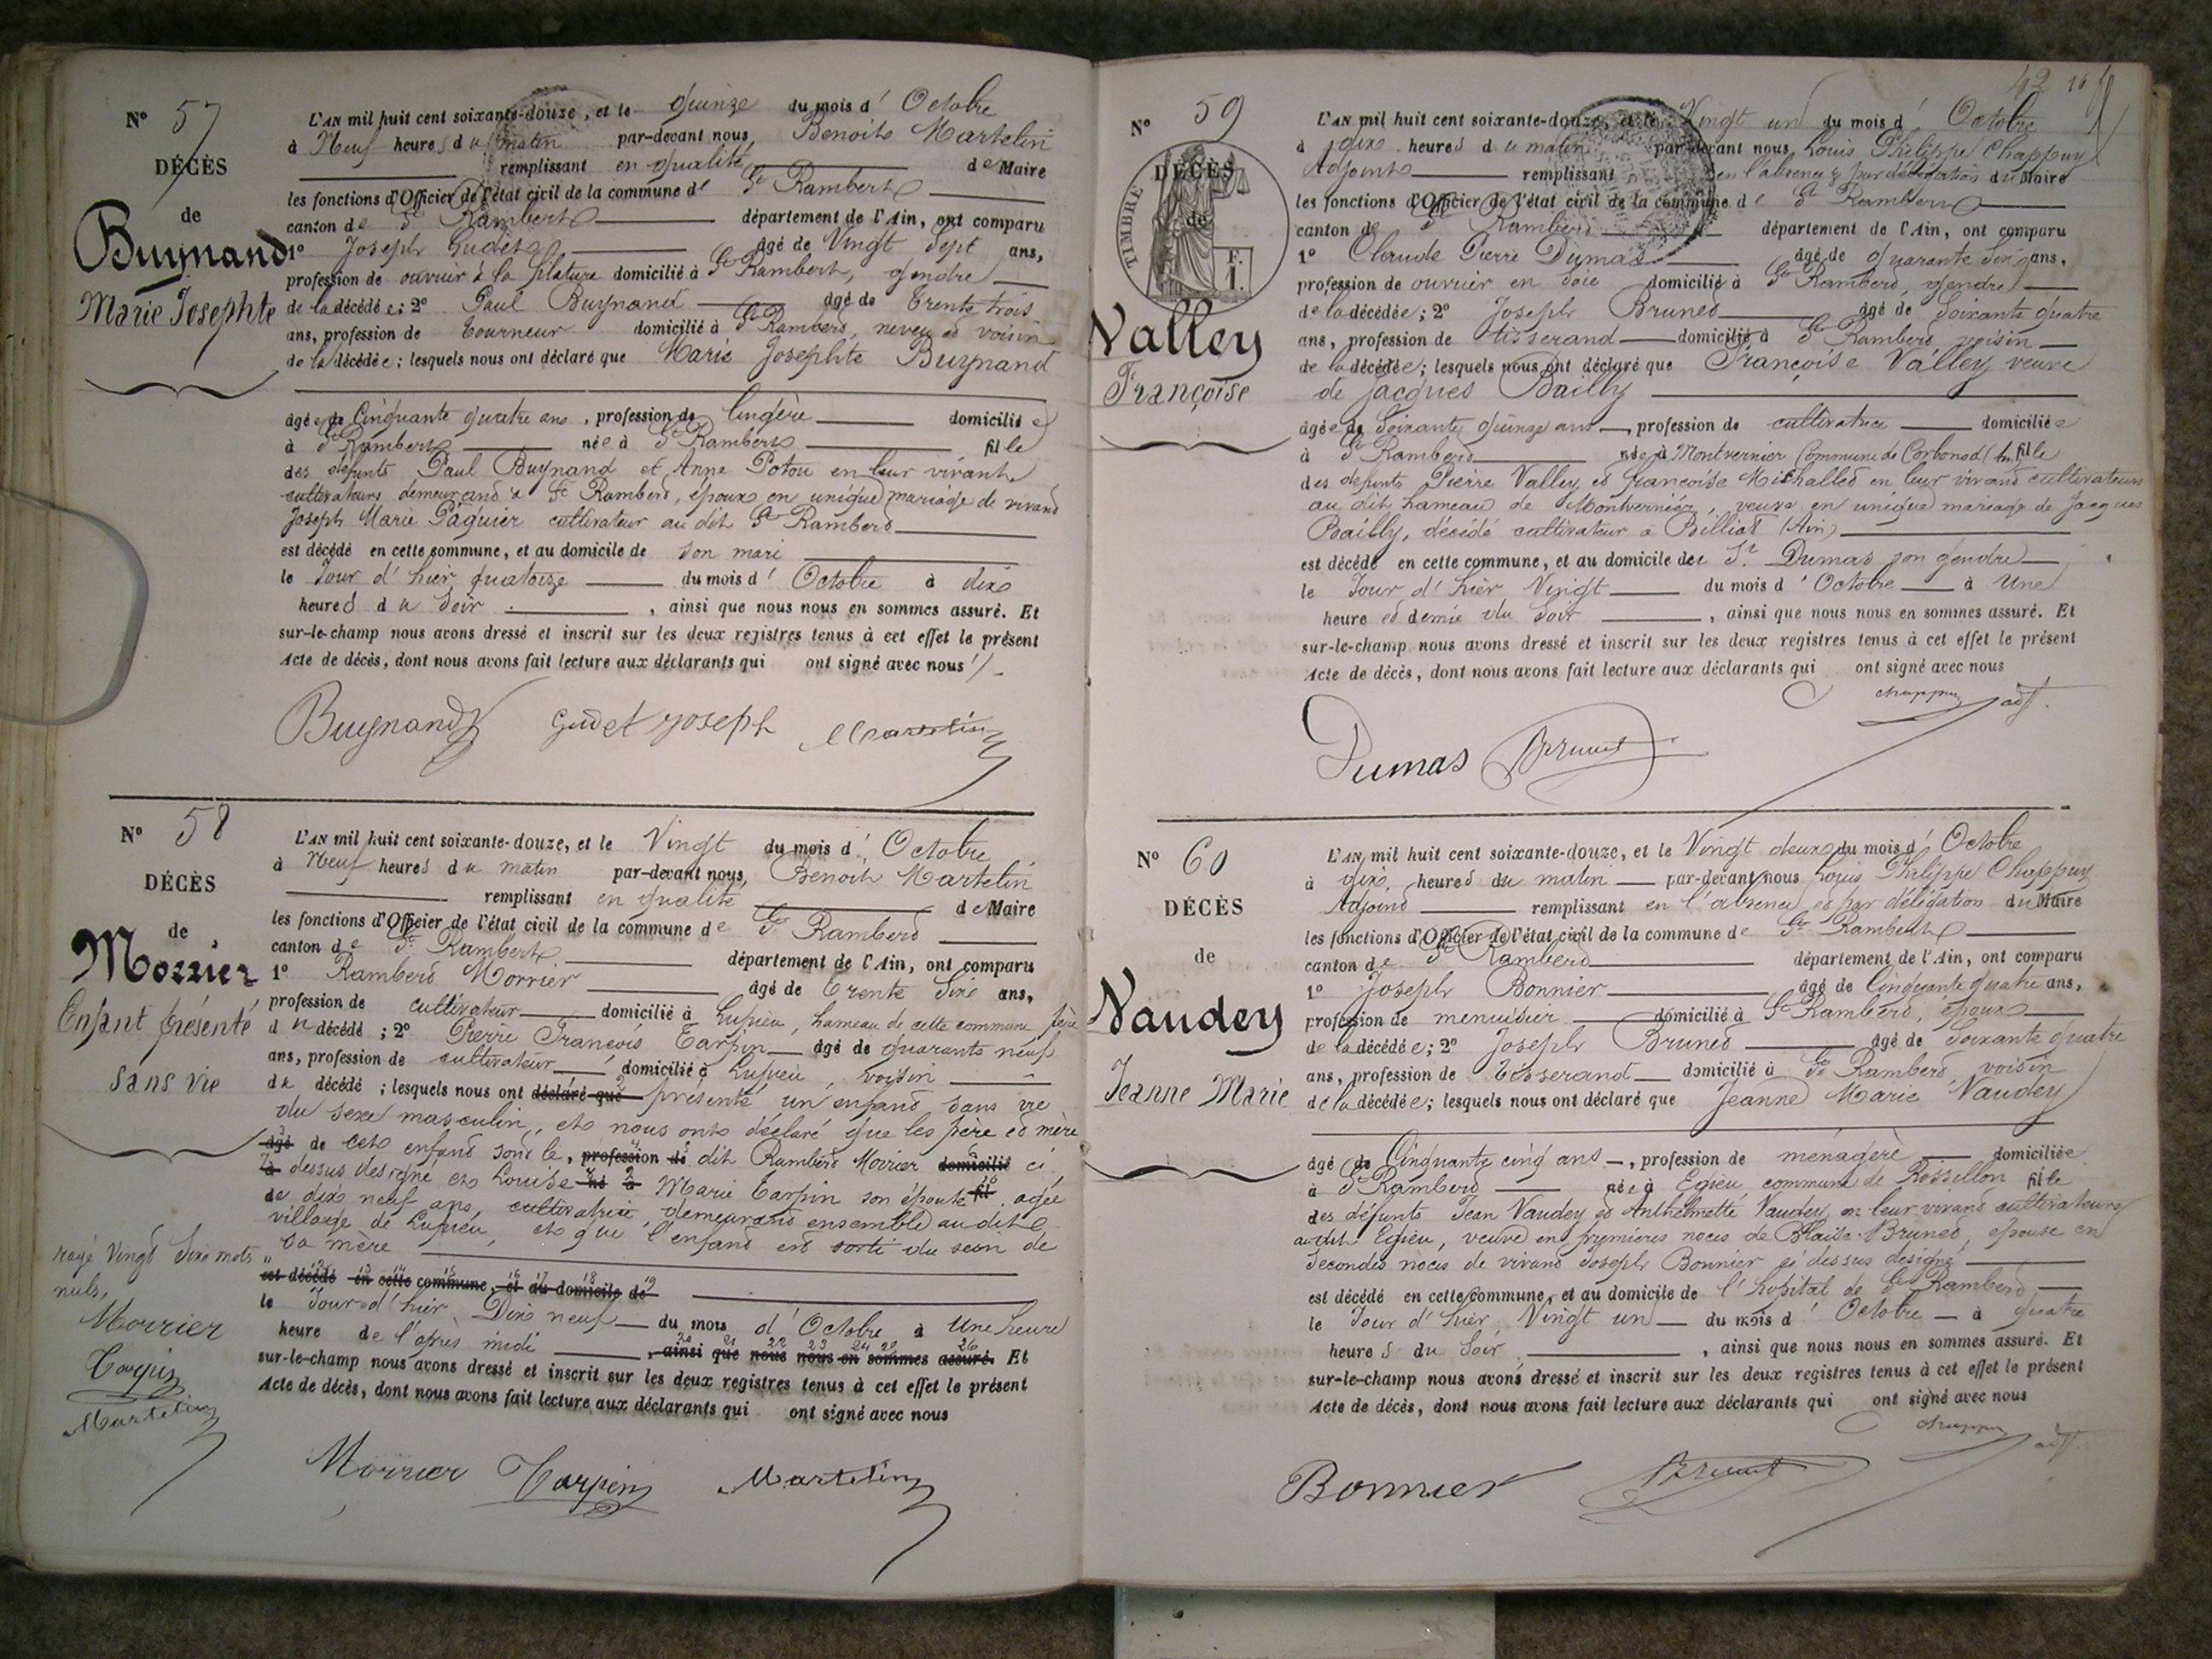 N° 57
DÉCÈS
de
Buynand
Marie Josephte
L'AN mil huit cent soixante-douze, et le quinze du mois d'Octobre
à Neuf heures du matin par-devant nous, Benoit Martelin
remplissant en qualité de Maire
les fonctions d'Officier de l'état civil de la commune de St Rambert
canton de St Rambert département de l'Ain, ont comparu
1° Joseph Gudet âgé de Vingt Sept ans,
profession de ouvrier à la filature domicilié à St Rambert, gendre
de la décédée; 2° Paul Buynand âgé de trente trois
ans, profession de tourneur domicilié à St Rambert, neveu et voisin
de la décédée; lesquels nous ont déclaré que Marie Josephte Buynand
âgée de Cinquante quatre ans, profession de lingère domiciliée
à St Rambert née à St Rambert fille
des défunts Paul Buynand et Anne Potou en leur vivant
cultivateurs demeurant à St Rambert, épouse en unique mariage de vivant
Joseph Marie Páquier cultivateur au dit St Rambert
est décédé en cette commune, et au domicile de son mari
le Jour d'hier quatorze du mois d'Octobre à dix
heures du Soir, ainsi que nous nous en sommes assuré. Et
sur-le-champ nous avons dressé et inscrit sur les deux registres tenus à cet effet le présent
Acte de décès, dont nous avons fait lecture aux déclarants qui ont signé avec nous
Buynand Gudet Joseph Martelin
N° 58
DÉCÈS
de
Morrier
Enfant présenté
sans vie
L'AN mil huit cent soixante-douze, et le Vingt du mois d'Octobre
à Neuf heures du matin par-devant nous, Benoit Martelin
remplissant en qualité de Maire
les fonctions d'Officier de l'état civil de la commune de St Rambert
canton de St Rambert département de l'Ain, ont comparu
1° Rambert Morrier âgé de trente Six ans,
profession de cultivateur domicilié à Luysieu, hameau de cette commune père
du décédé; 2° Pierre François Tarpin âgé de quarante neuf
ans, profession de cultivateur domicilié à Luysieu, voisin
du décédé; lesquels nous ont déclaré que présenté un enfant sans vie
du sexe masculin, et nous ont déclaré que les père et mère
âgé de cet enfant sont le, profession de dit Rambert Morrier domicilié ci
à dessus désigné et Louise né à Marie Tarpin son épouse fil agée
de dix neuf ans, cultivatrice, demeurant ensemble au dit
village de Luysieu, et que l'enfant est sorti du sein de
sa mère
est décédé en cette commune, et au domicile de
le Jour d'hier Dix neuf du mois d'Octobre à Une heure
heure de l'après midi, ainsi que nous nous en sommes assuré. Et
sur-le-champ nous avons dressé et inscrit sur les deux registres tenus à cet effet le présent
Acte de décès, dont nous avons fait lecture aux déclarants qui ont signé avec nous
rayé Vingt Six mots
nuls,
Morrier
Tarpin
Martelin
Morrier Tarpin Martelin
42
N° 59
DÉCÈS
de
TIMBRE
F.
1.
Valley
Françoise
L'AN mil huit cent soixante-douze, et le Vingt un du mois d'Octobre
à dix heures du matin par-devant nous, Louis Philippe Chappuy
Adjoint remplissant en l'absence & par délégation du Maire
les fonctions d'Officier de l'état civil de la commune de St Rambert
canton de St Rambert département de l'Ain, ont comparu
1° Claude Pierre Dumas âgé de quarante Six ans,
profession de ouvrier en soie domicilié à St Rambert, gendre
de la décédée; 2° Joseph Brunet âgé de Soixante quatre
ans, profession de tisserand domicilié à St Rambert voisin
de la décédée; lesquels nous ont déclaré que Françoise Valley veuve
de Jacques Bailly
âgée de Soixante quinze ans, profession de cultivatrice domiciliée
à St Rambert née à Montvernier Commune de Corbonod fille
des défunts Pierre Valley et françoise Michallet en leur vivant cultivateurs
au dit hameau de Montvernier, veuve en unique mariage de Jacques
Bailly, décédé cultivateur à Billiat (Ain)
est décédé en cette commune, et au domicile de Sr Dumas son gendre
le Jour d'hier Vingt du mois d'Octobre à Une
heure et demie du Soir, ainsi que nous nous en sommes assuré. Et
sur-le-champ nous avons dressé et inscrit sur les deux registres tenus à cet effet le présent
Acte de décès, dont nous avons fait lecture aux déclarants qui ont signé avec nous
Chappuy adjt.
Dumas Brunet
N° 60
DÉCÈS
de
Vaudey
Jeanne Marie
L'AN mil huit cent soixante-douze, et le Vingt deux du mois d'Octobre
à dix heures du matin par-devant nous Louis Philippe Chappuy
Adjoint remplissant en l'absence et par délégation du Maire
les fonctions d'Officier de l'état civil de la commune de St Rambert
canton de St Rambert département de l'Ain, ont comparu
1° Joseph Bonnier âgé de Cinquante quatre ans,
profession de menuisier domicilié à St Rambert, époux
de la décédée; 2° Joseph Brunet âgé de Soixante quatre
ans, profession de Tisserand domicilié à St Rambert voisin
de la décédée; lesquels nous ont déclaré que Jeanne Marie Vaudey
âgé de Cinquante cinq ans, profession de ménagère domiciliée
à St Rambert née à Egieu commune de Rossillon fille
des défunts Jean Vaudey et Anthelmette Vaudey en leur vivant cultivateurs
au dit Egieu, veuve en premières noces de Blaise Brunet, épouse en
secondes noces de vivant Joseph Bonnier ci dessus désigné
est décédé en cette commune, et au domicile de l'hopital de St Rambert
le Jour d'hier Vingt un du mois d'Octobre à quatre
heures du Soir, ainsi que nous nous en sommes assuré. Et
sur-le-champ nous avons dressé et inscrit sur les deux registres tenus à cet effet le présent
Acte de décès, dont nous avons fait lecture aux déclarants qui ont signé avec nous
Chappuy adjt.
Bonnier Brunet